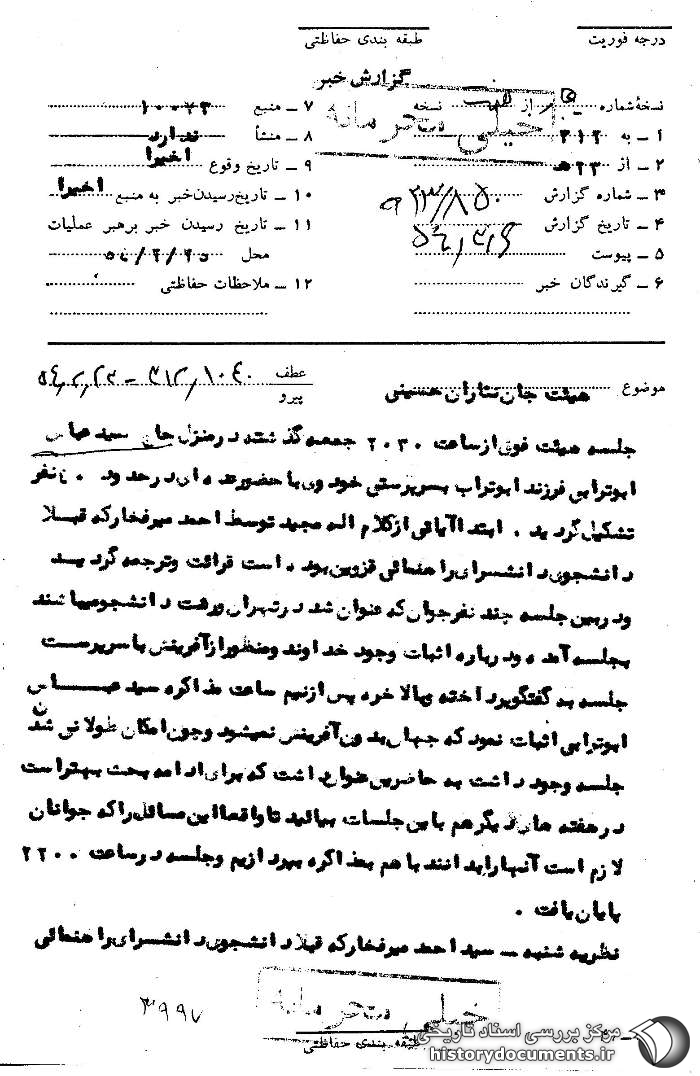 درجه فوریت
طبقه بندی حفاظتی
گزارش خبر
خیلی محرمانه
نسخهٔ شماره از نسخه
۱ ـ به ۳۱۲
۲ ـ از ۲۳ هـ
۳ ـ شماره گزارش
۴ ـ تاریخ گزارش
۵ ـ پیوست
۶ ـ گیرندگان خبر
۷ ـ منبع ۱۰۰۷۳
۸ ـ منشأ ندارد
۹ ـ تاریخ وقوع اخیرا
۱۰ ـ تاریخ رسیدن خبر به منبع اخیرا
۱۱ ـ تاریخ رسیدن خبر برهبر عملیات
محل
۱۲ ـ ملاحظات حفاظتی
موضوع هیئت جان نثاران حسینی
عطف ۳۱۲/۱۰۴۰ ـ ۵۴/۲/۲۳
پیرو
جلسه هیئت فوق از ساعت ۲۰۳۰ جمعه گذشته در منزل حاج سید عباس
ابوترابی فرزند ابوتراب بسرپرستی خود وی با حضور عده ای در حدود ۴۰ نفر
تشکیل گردید . ابتدا آیاتی از کلام اله مجید توسط احمد میرفخار که قبلا
دانشجوی دانشسرای راهنمائی قزوین بوده است قرائت و ترجمه گردید
و در بین جلسه چند نفر جوان که عنوان شد در تهران و رشت دانشجو میباشند
بجلسه آمده و درباره اثبات وجود خداوند و منظور از آفرینش با سرپرست
جلسه به گفتگو پرداخته و بالاخره پس از نیم ساعت مذاکره سید عباس
ابوترابی اثبات نمود که جهان بدون آفرینش نمیشود و چون امکان طولانی شدن
جلسه وجود داشت به حاضرین اظهار داشت که برای ادامه بحث بهتر است
در هفته های دیگر هم باین جلسات بیائید تا واقعا این مسائل را که جوانان
لازم است آنها را بدانند با هم بمذاکره بپردازیم و جلسه در ساعت ۲۲۰۰
پایان یافت .
نظریه شنبه ـ سید احمد میرفخار که قبلا دانشجوی دانشسرای راهنمائی
خیلی محرمانه
۳۹۹۷
طبقه بندی حفاظتی
مرکز بررسی اسناد تاریخی
historydocuments.ir